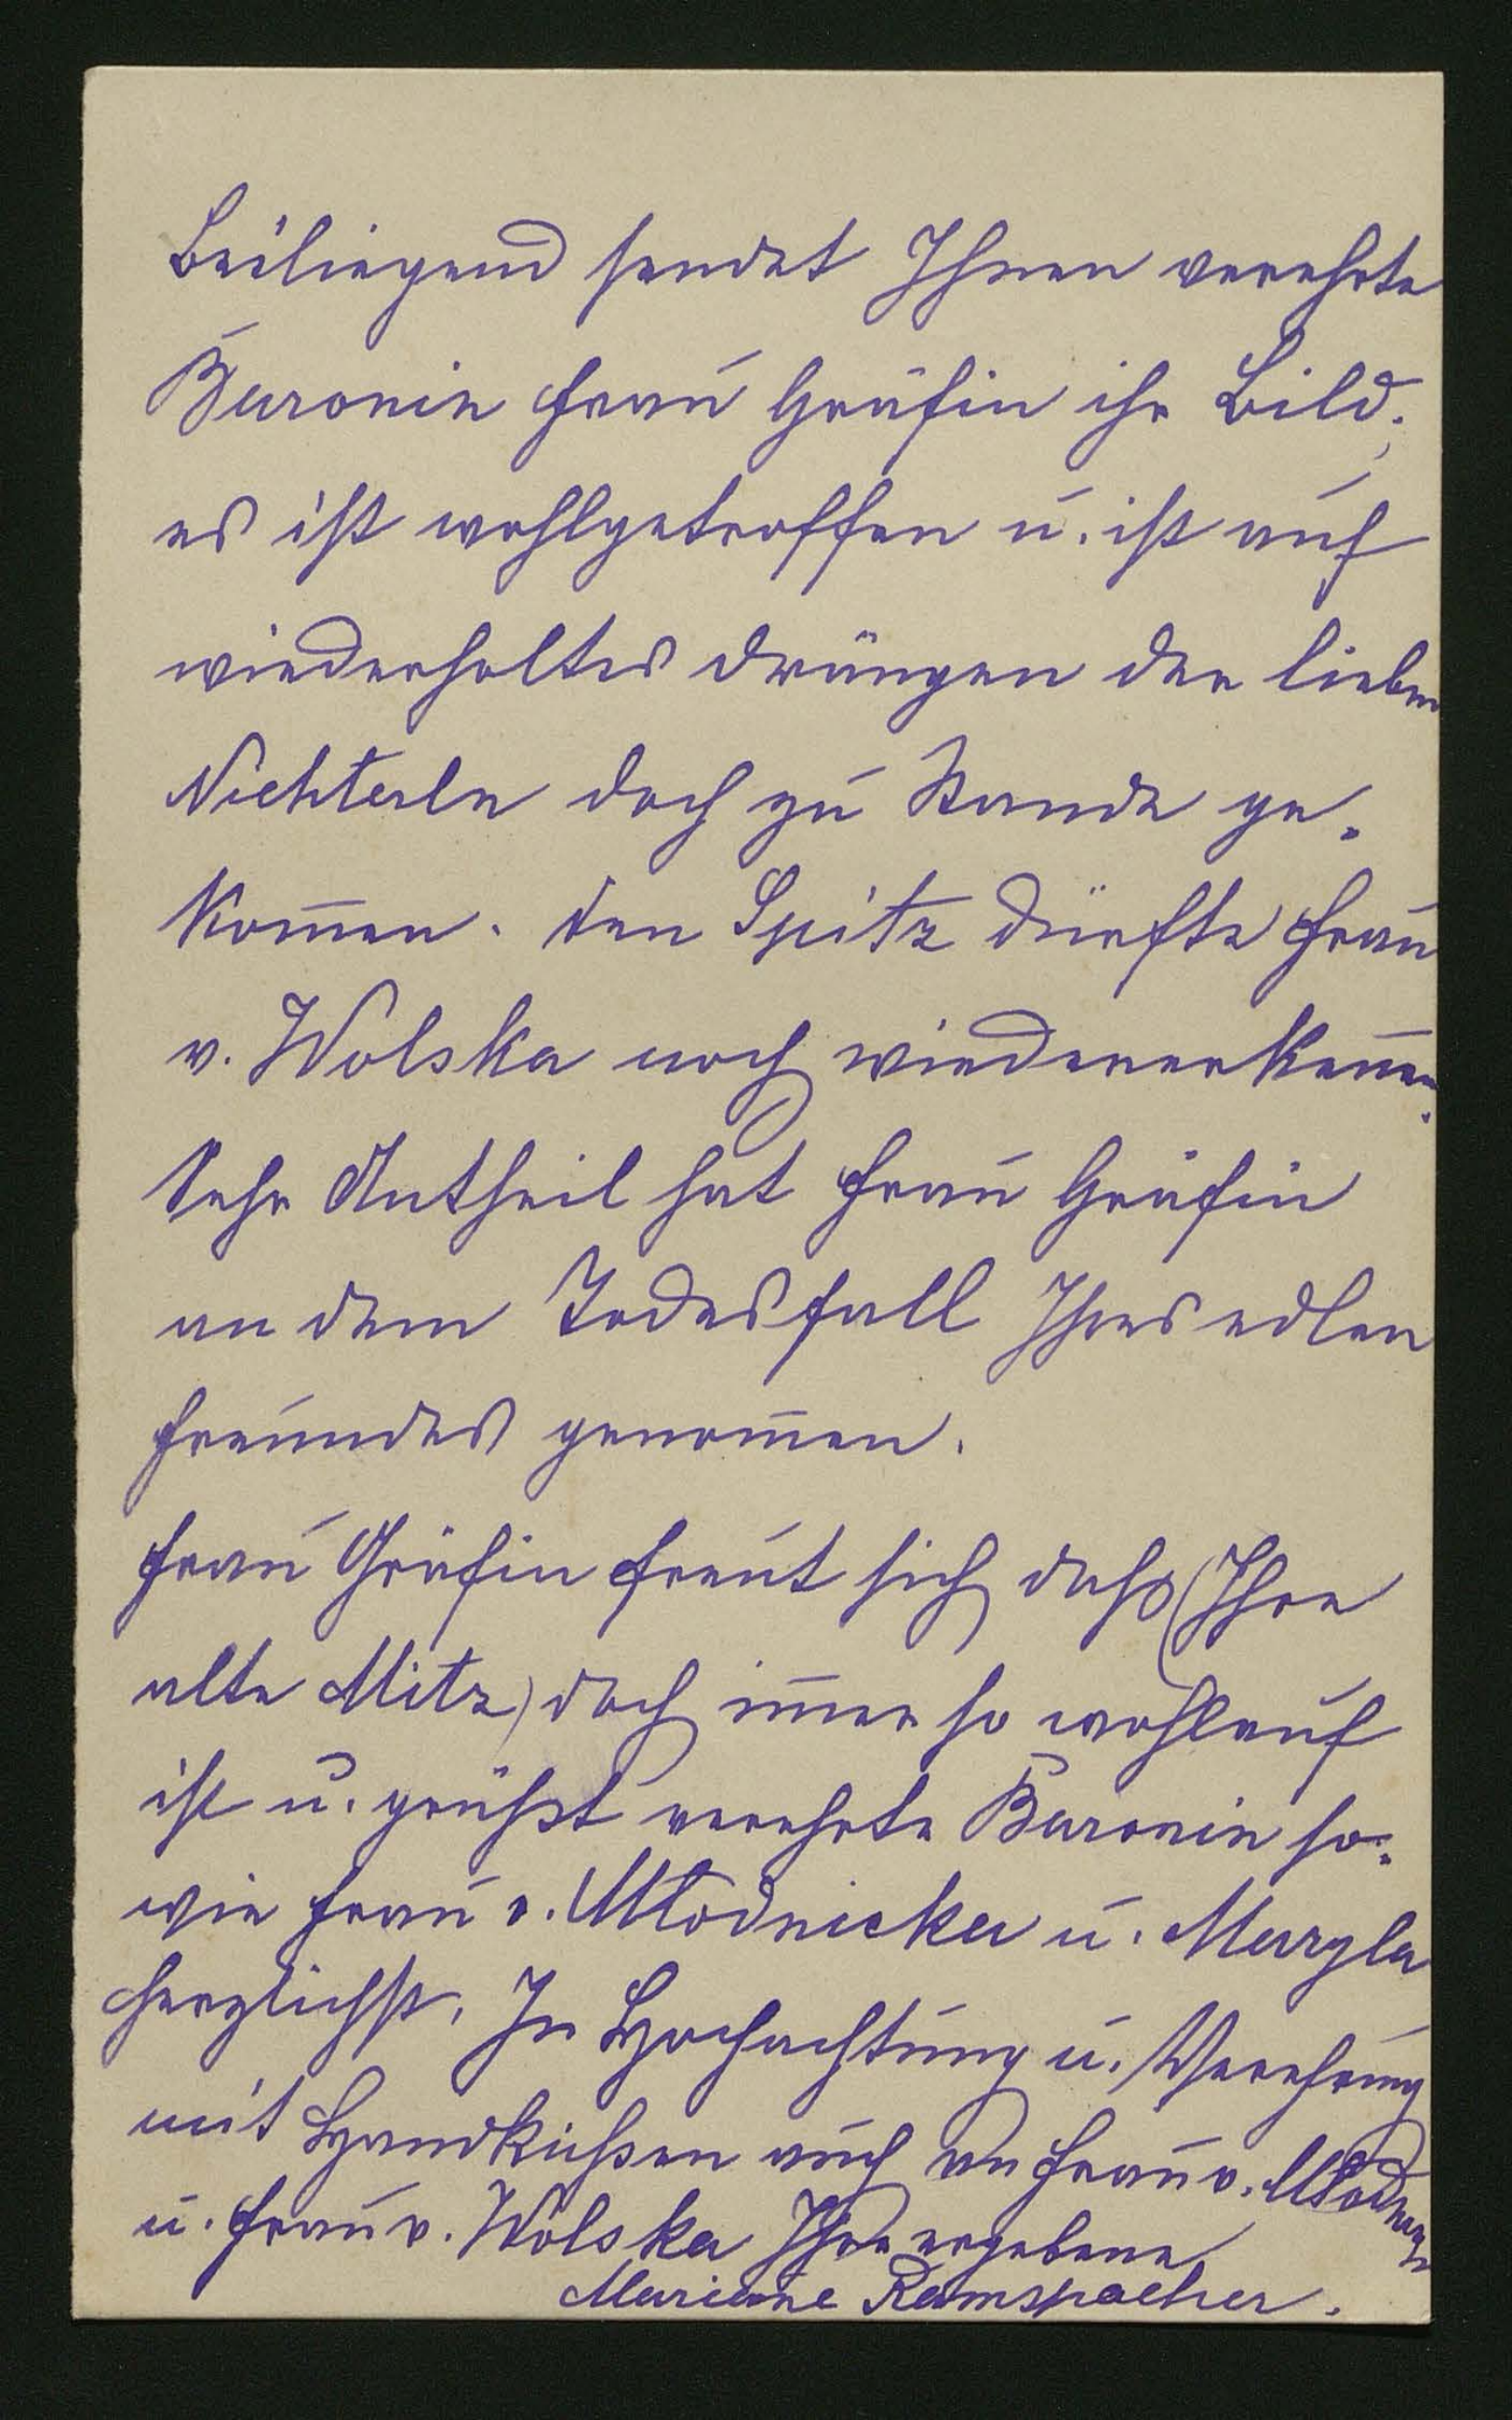 Beiliegend sendet Ihnen verehrte
Baronin Frau Gräfin ihr Bild.
es ist wohlgetroffen u. ist auf
wiederholtes drängen der lieben
Nichterln doch zu Stande ge-
kom̅en. den Spitz dürfte Frau
v. Wolska noch wiedererken̅en.
Sehr Antheil hat Frau Gräfin
an dem Todesfall Ihres edlen
Freundes genom̅en.
Frau Gräfin freut sich daß (Ihre
alte Mitz) doch im̅er so wohlauf
ist u. grüßt verehrte Baronin so-
wie Frau v. Młodnicka u. Maryla
herzlichst. In Hochachtung u. Verehrung
mit Handküßen auch an Frau v.
u. Frau v. Wolska Ihre ergebene
Mariane Ramspacher.